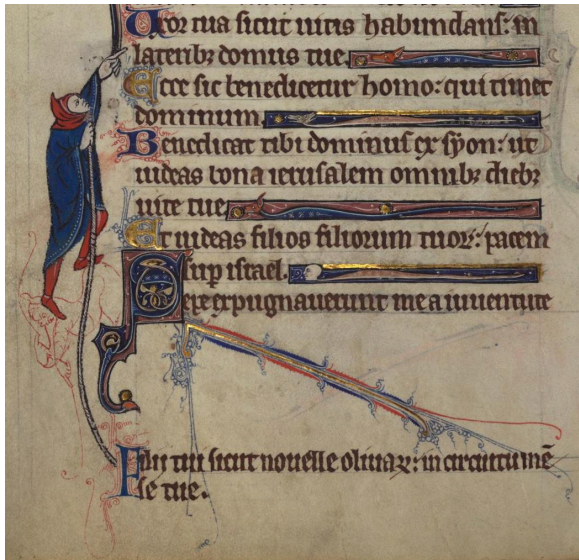 Uxor tua sicut uitis habundans: in
laterib; domus tue.
Ecce sic benedicetur homo: qui timet
dominum.
Benedicat tibi dominus ex syon: ut
uideas bona ierusalem omnib; dieb;
uite tue
Et uideas filios filiorum tuoꝝ: pacem
sup israel.
Sepe expugnauerunt me a iuuentute
Filii tui sicut nouelle oliuaꝝ: in circuitu mē
se tue.